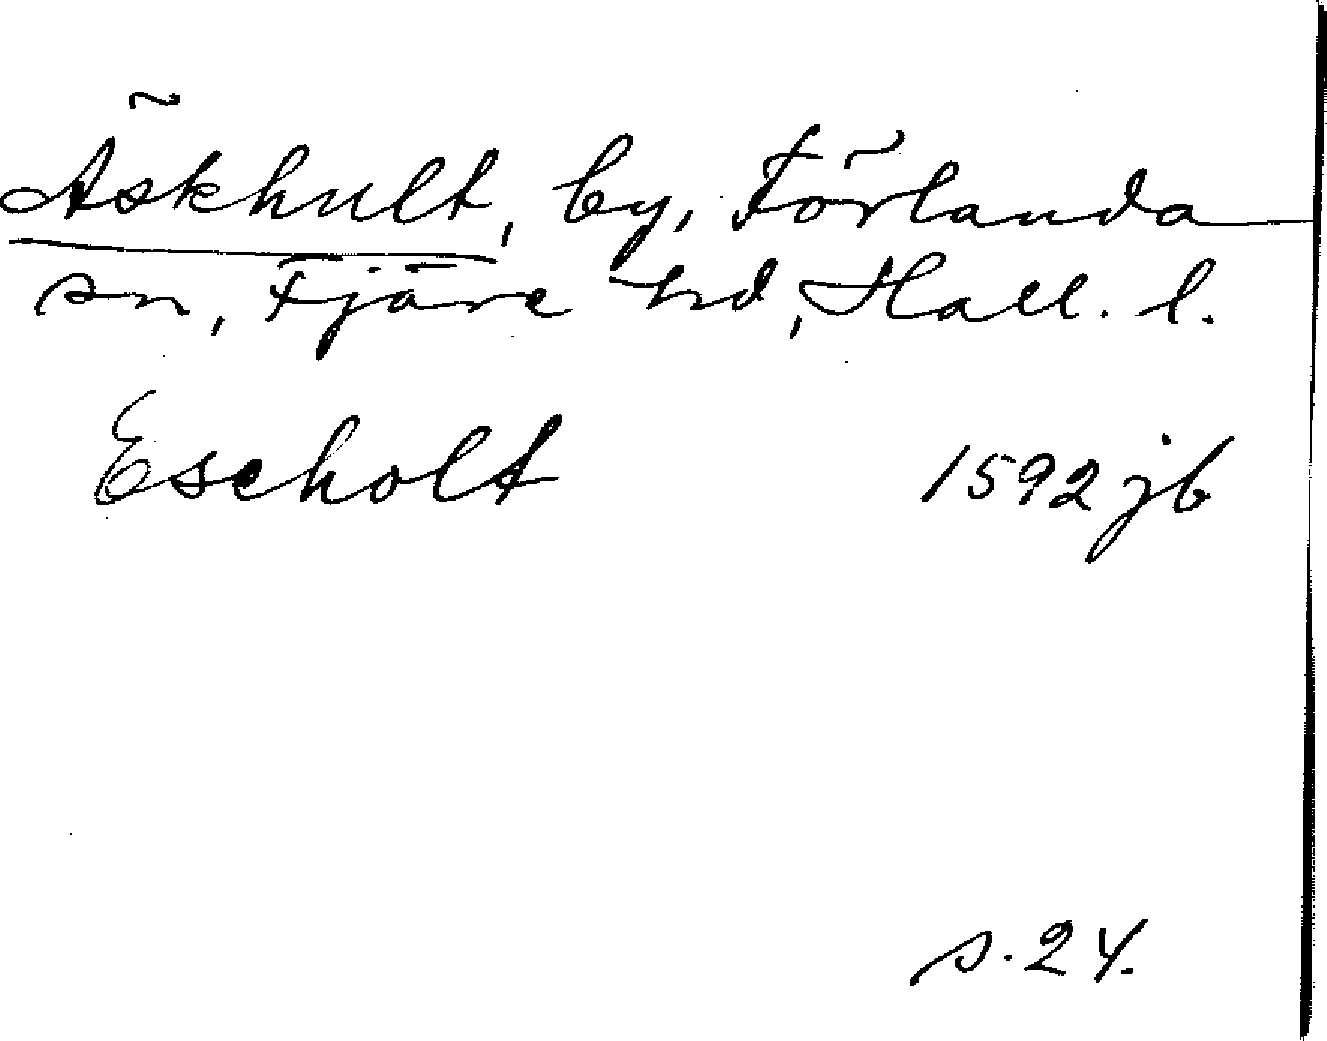 Äskhult, by, Förlanda
sn, Fjäre hd, Hall. l.
Escholt 1592 jb
s. 24.